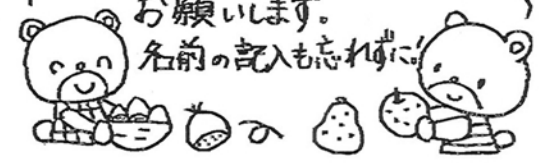 お願いします。
名前の記入も忘れずに!